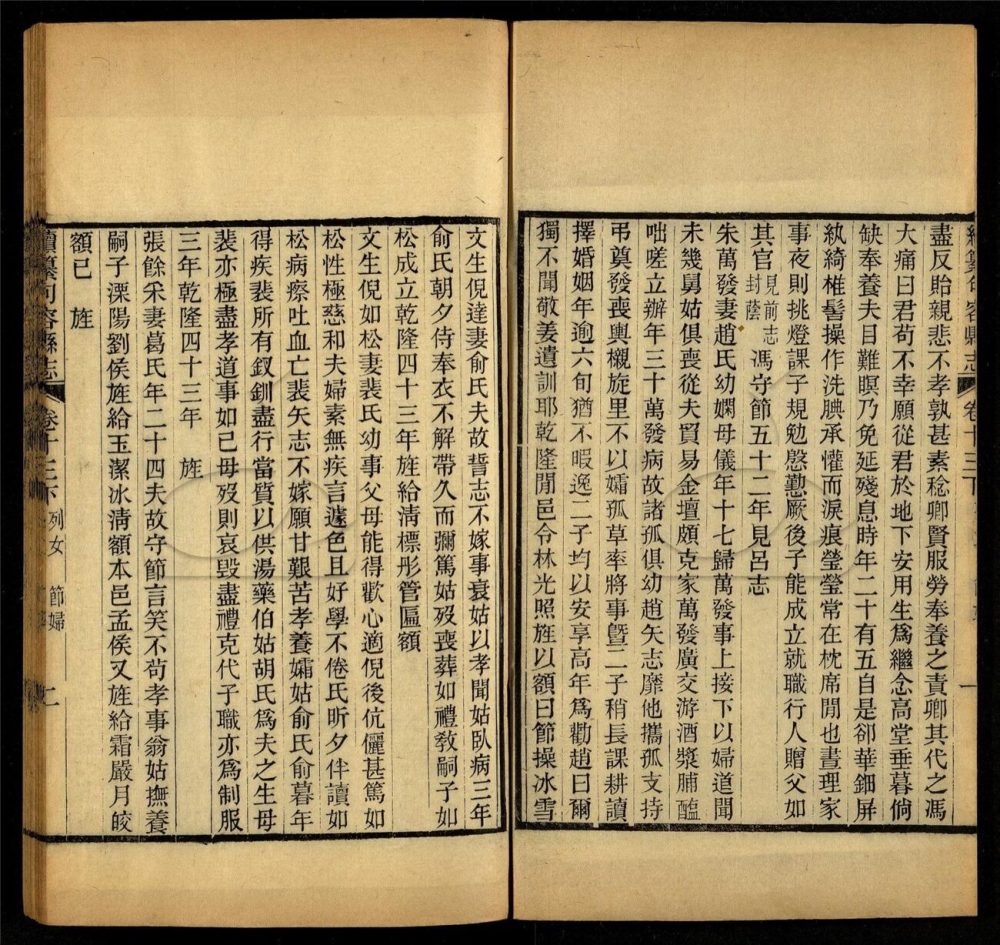 續纂句容縣志 卷十三下
盡反貽親悲不孝孰甚素稔卿賢服勞奉養之責卿其代之馮
大痛曰君苟不幸願從君於地下安用生爲繼念高堂垂暮倘
缺奉養夫目難瞑乃免延殘息時年二十有五自是卻華鈿屏
紈綺椎髻操作洗腆承懽而淚痕瑩瑩常在枕席閒也晝理家
事夜則挑燈課子規勉慇懃厥後子能成立就職行人贈父如
其官見前志封蔭馮守節五十二年見呂志
朱萬發妻趙氏幼嫻母儀年十七歸萬發事上接下以婦道聞
未幾舅姑俱喪從夫貿易金壇頗克家萬發廣交游酒漿脯醢
咄嗟立辦年三十萬發病故諸孤俱幼趙矢志靡他攜孤支持
弔奠發喪輿櫬旋里不以孀孤草率將事曁二子稍長課耕讀
擇婚姻年逾六旬猶不暇逸二子均以安享高年爲勸趙曰爾
獨不聞敬姜遺訓耶乾隆閒邑令林光照旌以額曰節操冰雪
文生倪達妻俞氏夫故誓志不嫁事衰姑以孝聞姑臥病三年
俞氏朝夕侍奉衣不解帶久而彌篤姑歿喪葬如禮敎嗣子如
松成立乾隆四十三年旌給淸標彤管匾額
文生倪如松妻裴氏幼事父母能得歡心適倪後伉儷甚篤如
松性極慈和夫婦素無疾言遽色且好學不倦氏昕夕伴讀如
松病瘵吐血亡裴矢志不嫁願甘艱苦孝養孀姑俞氏俞暮年
得疾裴所有釵釧盡行當質以供湯藥伯姑胡氏爲夫之生母
裴亦極盡孝道事如己母歿則哀毀盡禮克代子職亦爲制服
三年乾隆四十三年 旌
張餘釆妻葛氏年二十四夫故守節言笑不苟孝事翁姑撫養
嗣子溧陽劉侯旌給玉潔冰淸額本邑孟侯又旌給霜嚴月皎
額已 旌
續纂句容縣志 卷十三下 列女 節婦